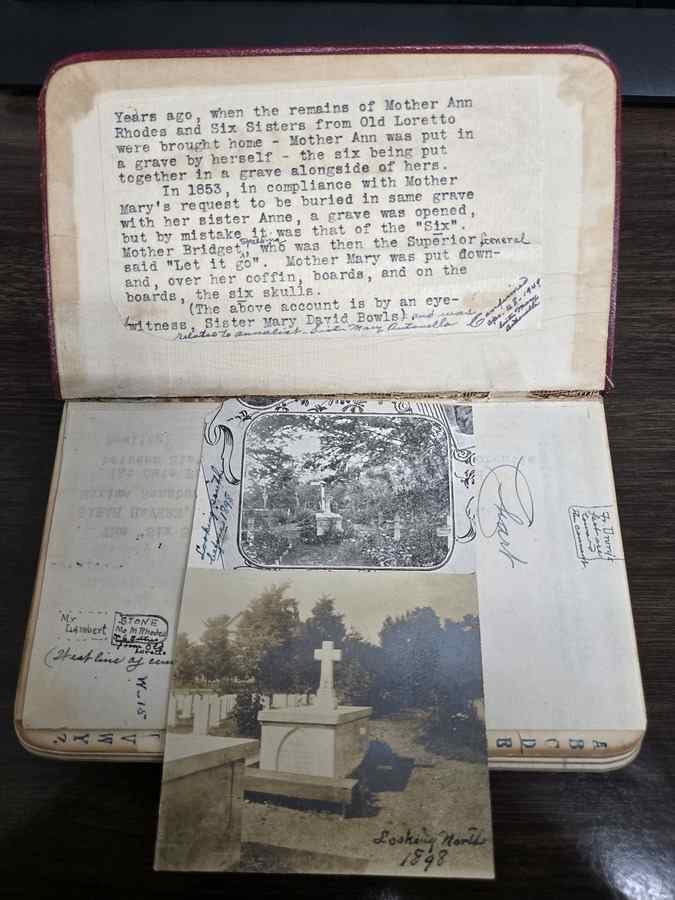 Years ago, when the remains of Mother Ann
Rhodes and Six Sisters from Old Loretto
were brought home - Mother Ann was put in
a grave by herself - the six being put
together in a grave alongside of hers.
In 1853, in compliance with Mother
Mary's request to be buried in same grave
with her sister Anne, a grave was opened,
but by mistake it was that of the "Six".
Mother Bridget, who was then the Superior General
said "Let it go". Mother Mary was put down-
and, over her coffin, boards, and on the
boards, the six skulls.
(The above account is by an eye-
witness, Sister Mary David Bowls) and was
related to annalist Sister Mary Antonella
Looking South
1898
Chart
Mr
Lambert
STONE
Mo M Rhodes
from Old
Loretto
(West line of
W-15
Looking North
1898
Y?
W
V
D
C
B
A